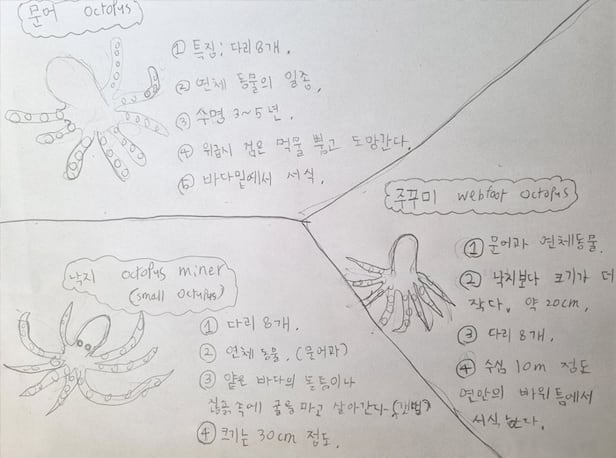 문어 octopus
① 특징: 다리 8개.
② 연체 동물의 일종,
③ 수명 3~5년.
④ 위급시 검은 먹물 뿜고 도망간다.
⑤ 바다밑에서 서식.
낙지 octopus miner
(small octupus)
① 다리 8개.
② 연체 동물. (문어과)
③ 얕은 바다의 돌틈이나
진흙 속에 굴을 파고 살아간다. (갯벌)
④ 크기는 30cm 정도.
주꾸미 webfoot octopus
① 문어과 연체동물.
② 낙지보다 크기가 더
작다. 약 20cm,
③ 다리 8개.
④ 수심 10m 정도
연안의 바위 틈에서
서식 한다.